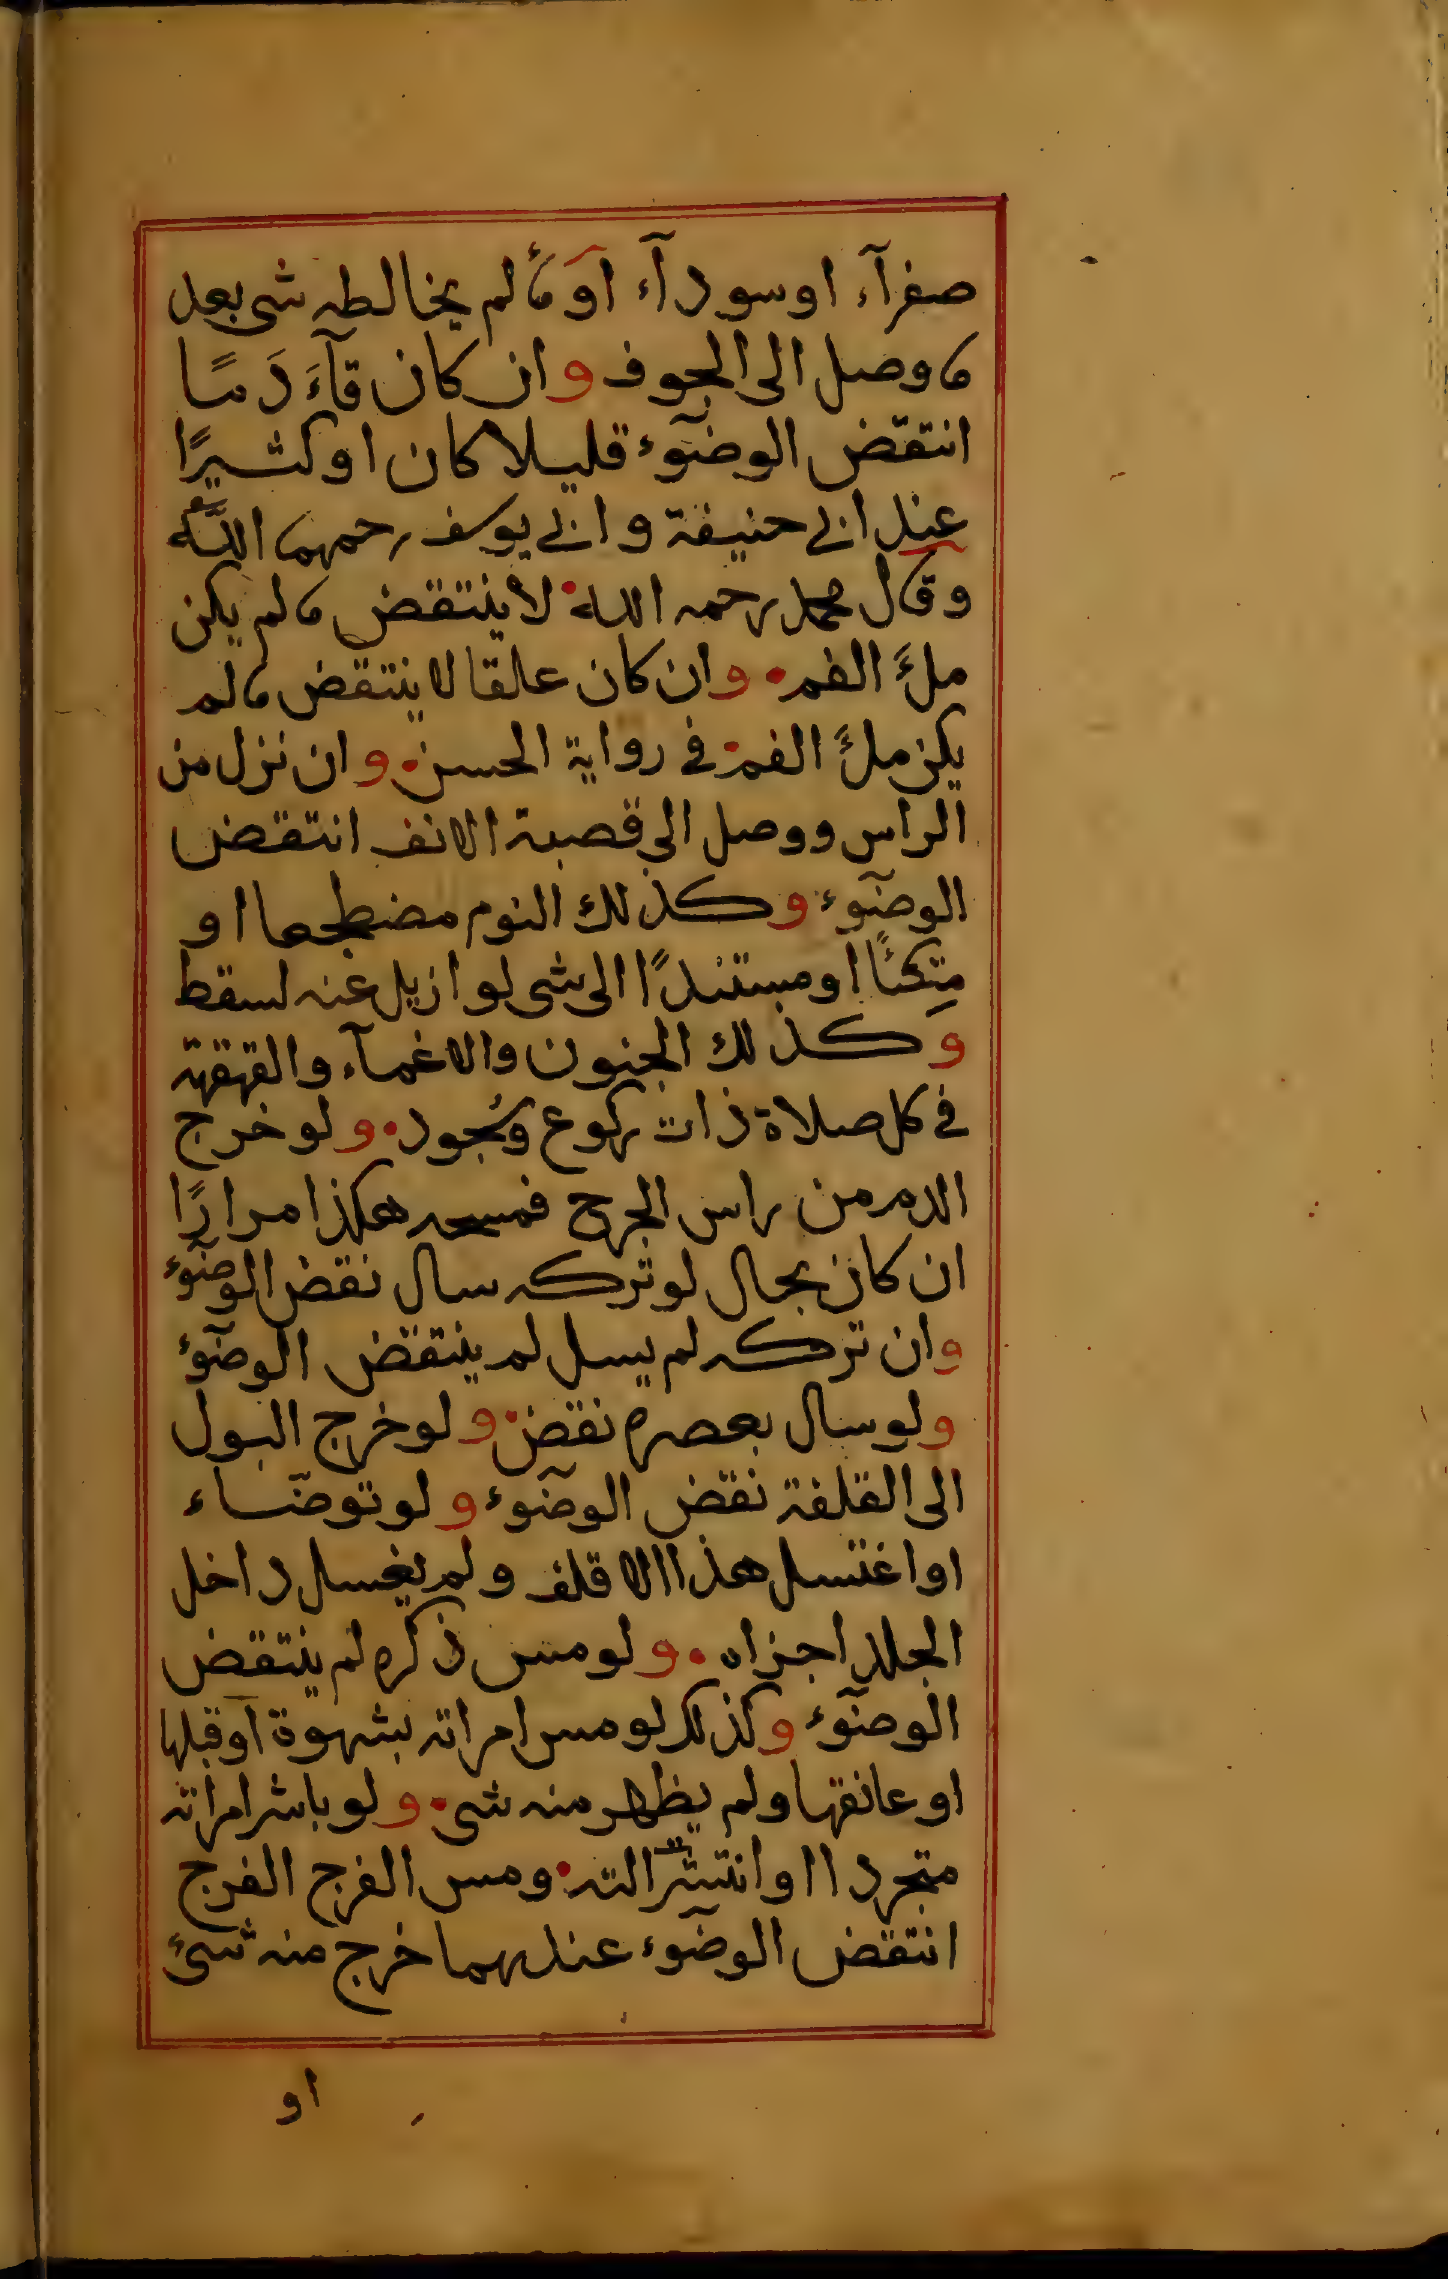 صفرآء اوسودآء اَو مًا لم يخالطه شى بعد
ما وصل الى الجوف وان كان قآءَ دَمًا
انتقض الوضوٓء قليلا كان او كثيرًا
عند ابى حنيفة وابى يوسف رحمهما اللّٰه
وقال محمد رحمه الله لا ينتقض ما لم يكن
ملءَ الفم وان كان علقا لا ينتقض ما لم
يكن ملءً الفم فى رواية الحسن وان نزل من
الراس ووصل الى قصبة الانف انتقض
الوضوٓء وكذلك النوم مضطجعا او
متكئًا او مستندًا الى شى لو ازيل عنه لسقط
وكذلك الجنون والاغمآء والقهقهة
فى كل صلاة ذات ركوع وسُجود ولو خرج
الدم من راس الجرح فمسحه هكذا مرارًا
ان كان بحال لو تركه سال نقض الوضوٓء
وان تركه لم يسل لم ينتقض الوضوٓء
ولو سال بعصره نقض ولو خرج البول
الى القلفة نقض الوضوٓء ولو توضّاء
او اغتسل هذا الاقلف ولم يغسل داخل
الجلد اجزاه ولو مس ذكره لم ينتقض
الوضوٓء وكذلك لو مس امراته بشهوة اوقبلها
او عانقها ولم يظهر منه شى ولو باشر امراته
متجردا او انتشر التة ومس الفرج الفرج
انتقض الوضوٓء عندهما خرج منه شىء
او